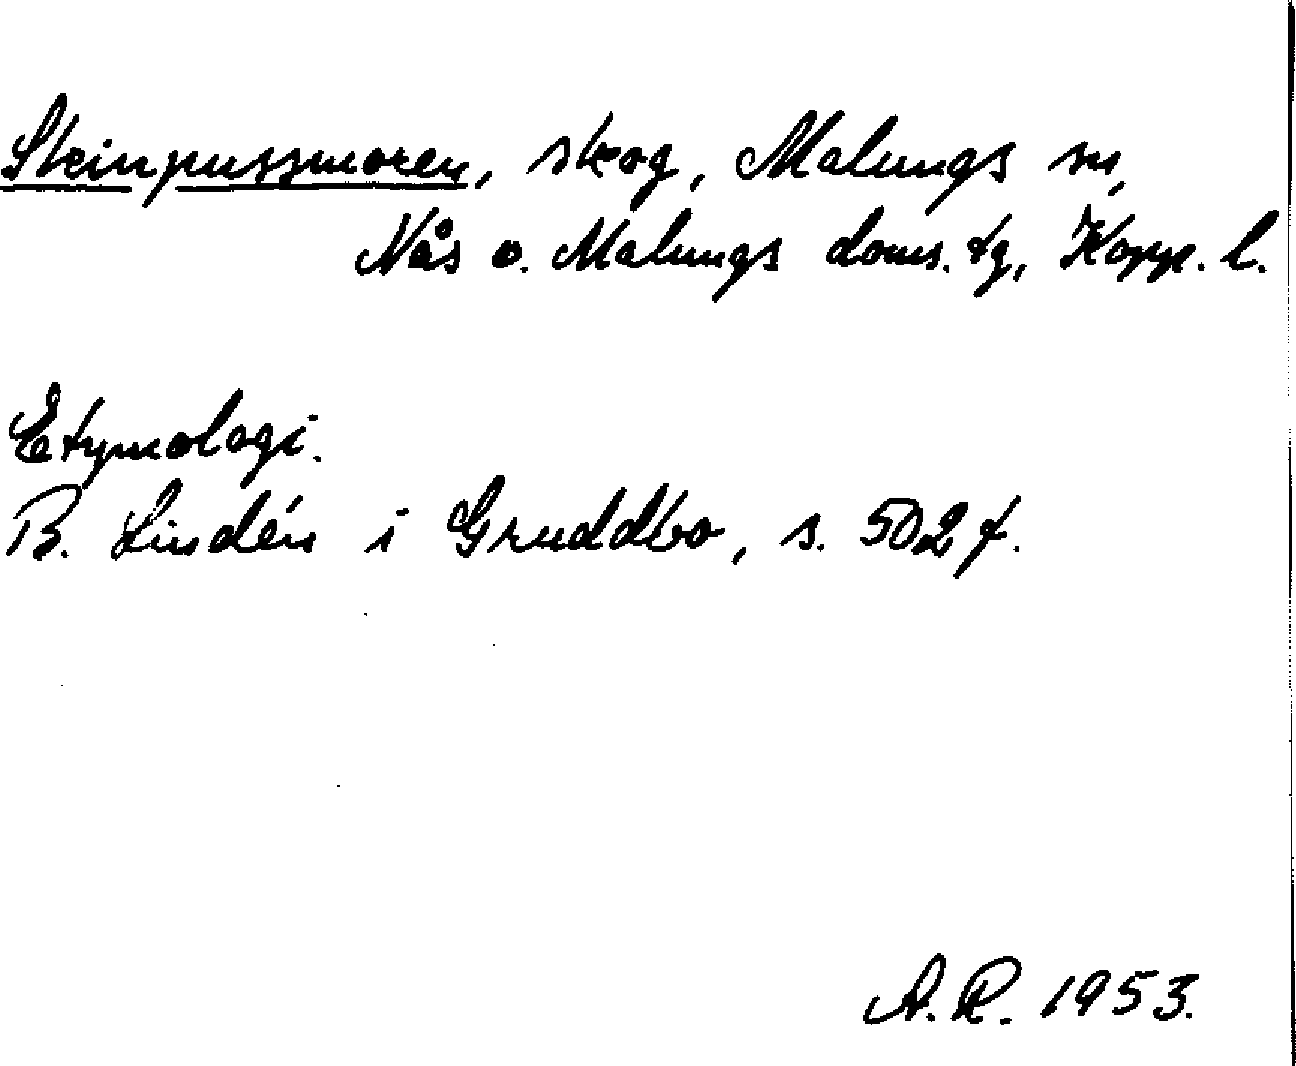 Steinpussmoren, skog, Malungs sn,
Nås o. Malungs doms. tg, Kopp. l.
Etymologi.
B. Lindén i Gruddbo, s. 502 f.
A. R. 1953.